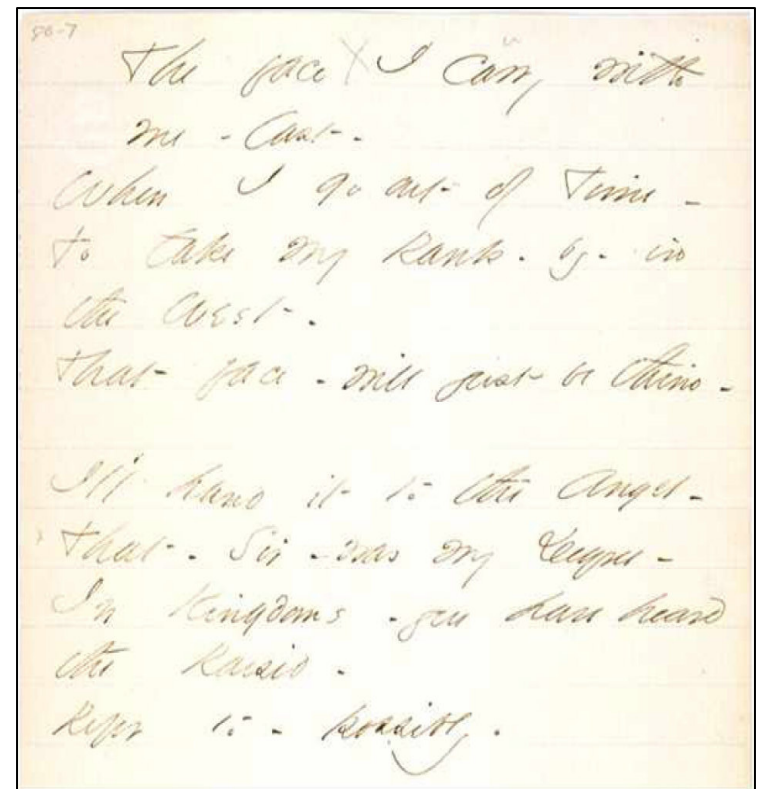 80-7
The face I carry with
me - last -
When I go out of Time -
To take my Rank - by - in
the West -
That face - will just be thine -
I'll hand it to the Angel -
That - Sir - was my Degree -
In Kingdoms - you have heard
the Raised -
Refer to - possibly.